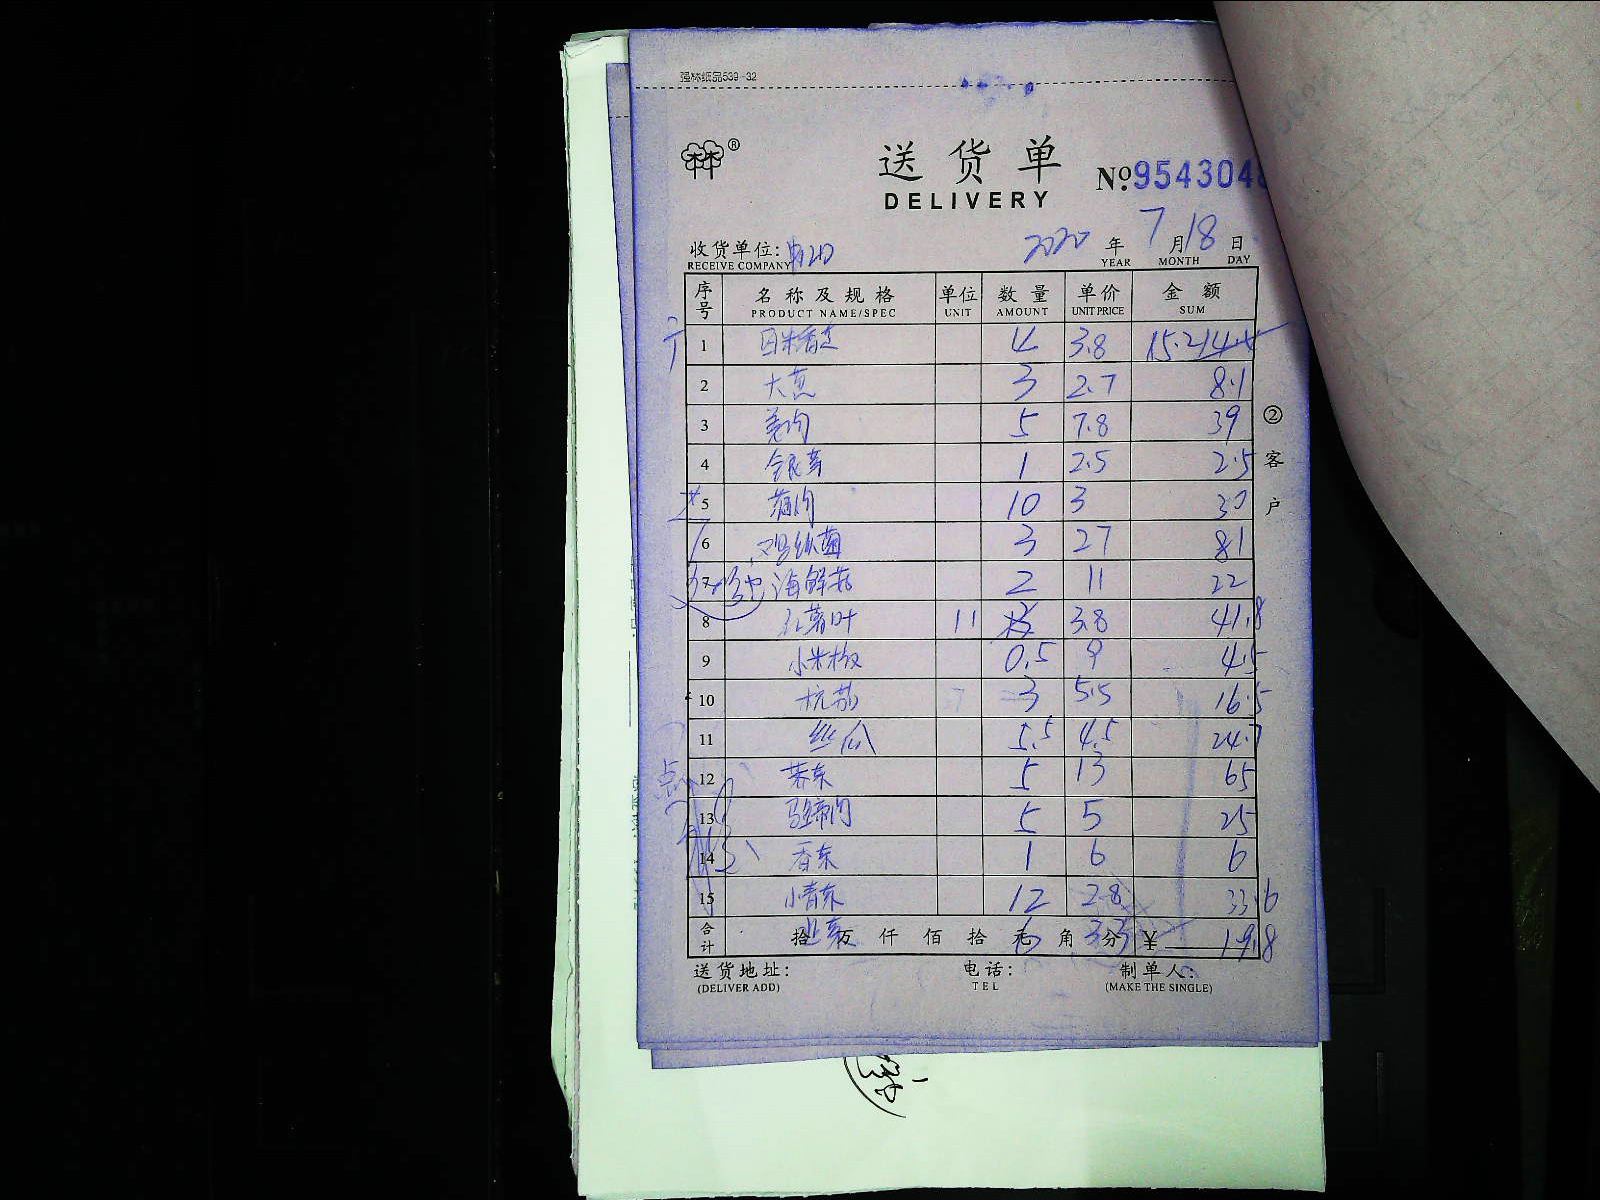 强林纸品539-32
林林®
送货单
DELIVERY
№954304
收货单位:
RECEIVE COMPANY
2020 年 7 月 18 日
YEAR MONTH DAY
序号 名称及规格 单位 数量 单价 金额
PRODUCT NAME/SPEC UNIT AMOUNT UNIT PRICE SUM
1 4 3.8 15.2
2 大葱 3 2.7 8.1
3 姜肉 5 7.8 39
4 银芽 1 2.5 2.5
5 蒲肉 10 3 30
6 鸡丝菌 3 27 81
7 海鲜菇 2 11 22
8 红薯叶 11 3.8 41.8
9 小米椒 0.5 9 4.5
10 杭茄 3 5.5 16.5
11 丝瓜 5.5 4.5 24.7
12 5 13 65
13 马蹄肉 5 5 25
14 香菜 1 6 6
15 小青菜 12 2.8 33.6
合计 拾 万 仟 佰 拾 元 角 分 ¥
6 3.3 19.8
② 客户
送货地址: 电话: 制单人:
(DELIVER ADD) TEL (MAKE THE SINGLE)